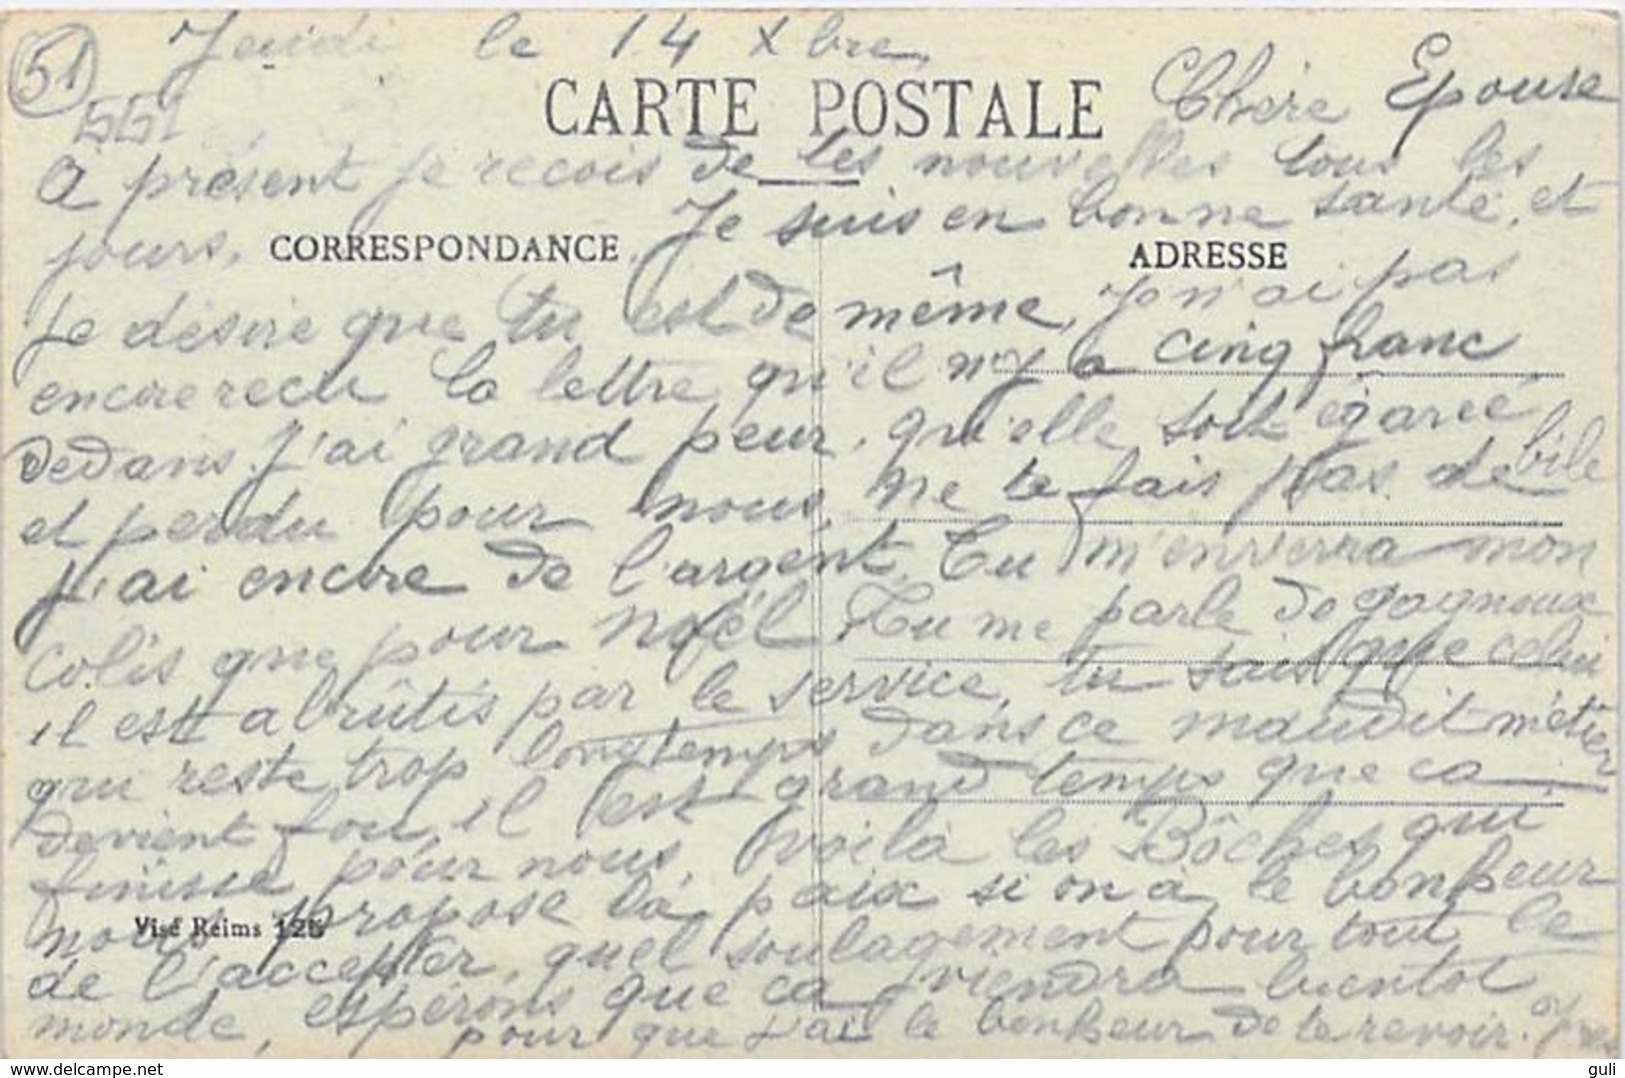 51
551
Jeudi le 14 Xbre
CARTE POSTALE
Chère Epouse
A présent je recois de tes nouvelles tous les
jours. Je suis en bonne santé, et
CORRESPONDANCE
ADRESSE
Je désire que tu est de même, Je n'ai pas
encore recu la lettre qu'il n'y a cinq franc
dedans. J'ai grand peur, qu'elle soit égarée
et perdu pour nous, ne te fais pas de bile
j'ai encore de l'argent. Tu m'enverra mon
colis que pour Noël. Tu me parle de
il est abrûtis par le service, tu sais que celui
qui reste trop longtemps dans ce maudit métier
devient fou, il est grand temps que ca
finisse pour nous. Voilà les Bôches qui
nous propose la paix si on à le bonheur
Visé Reims 125
de l'accepter, quel soulagement pour tout le
monde, espérons que ca viendra bientot
pour que j'ai le bonheur de te revoir.
delcampe.net
guli